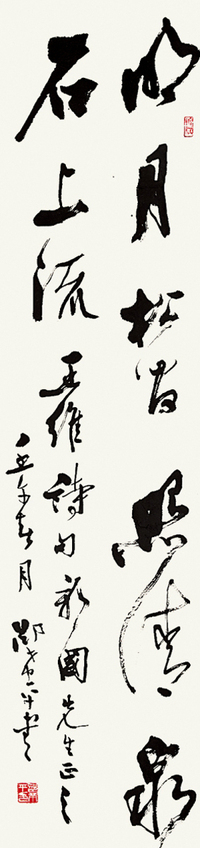 明月松間照清泉
石上流 王維詩句 國先生正之
丑年春月 書